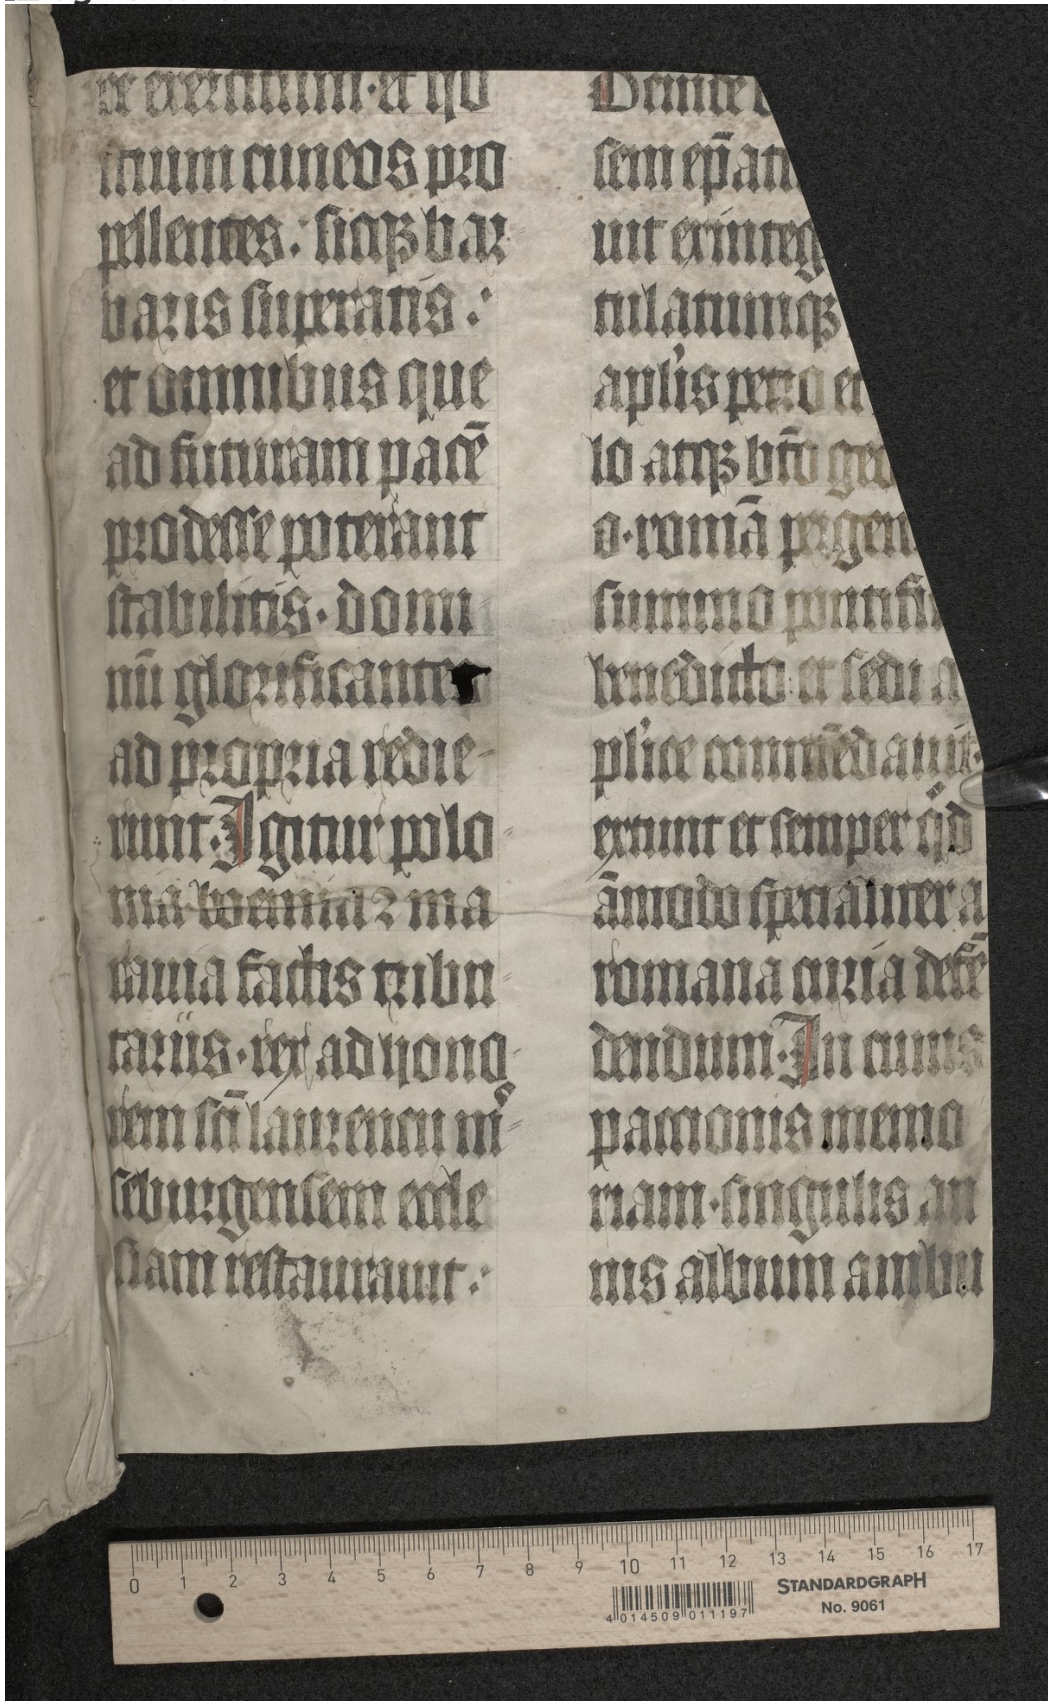 re exercitum · et ho
stium cuneos pro
pellentes : sicqꝫ bar
baris superatis :
et omnibus que
ad futuram pacē
prodesse poterant
stabilitis · domi
nū glorificantes
ad propria redie-
runt · Igitur polo-
nia boemia ⁊ ma
rauia factis tribu-
tariis · rex ad hono-
rem sc̄i laurencii m̄-
seburgensem eccle
siam restaurauit :
Deinde b
sem ep̄atu
uit exinteg
tulatumqꝫ
apl'is petro et
lo atqꝫ bt̄o geo
o · romā pergen
summo pontifi
benedicto et sedi a
pl'ice commēdauit ·
extunc et semper q̇d
āmodo specialiter a
romana curia defē
dendum · In cuius
pactionis memo
riam · singulis an
nis album ambu
0 1 2 3 4 5 6 7 8 9 10 11 12 13 14 15 16 17
STANDARDGRAPH
No. 9061
4 014509 011197